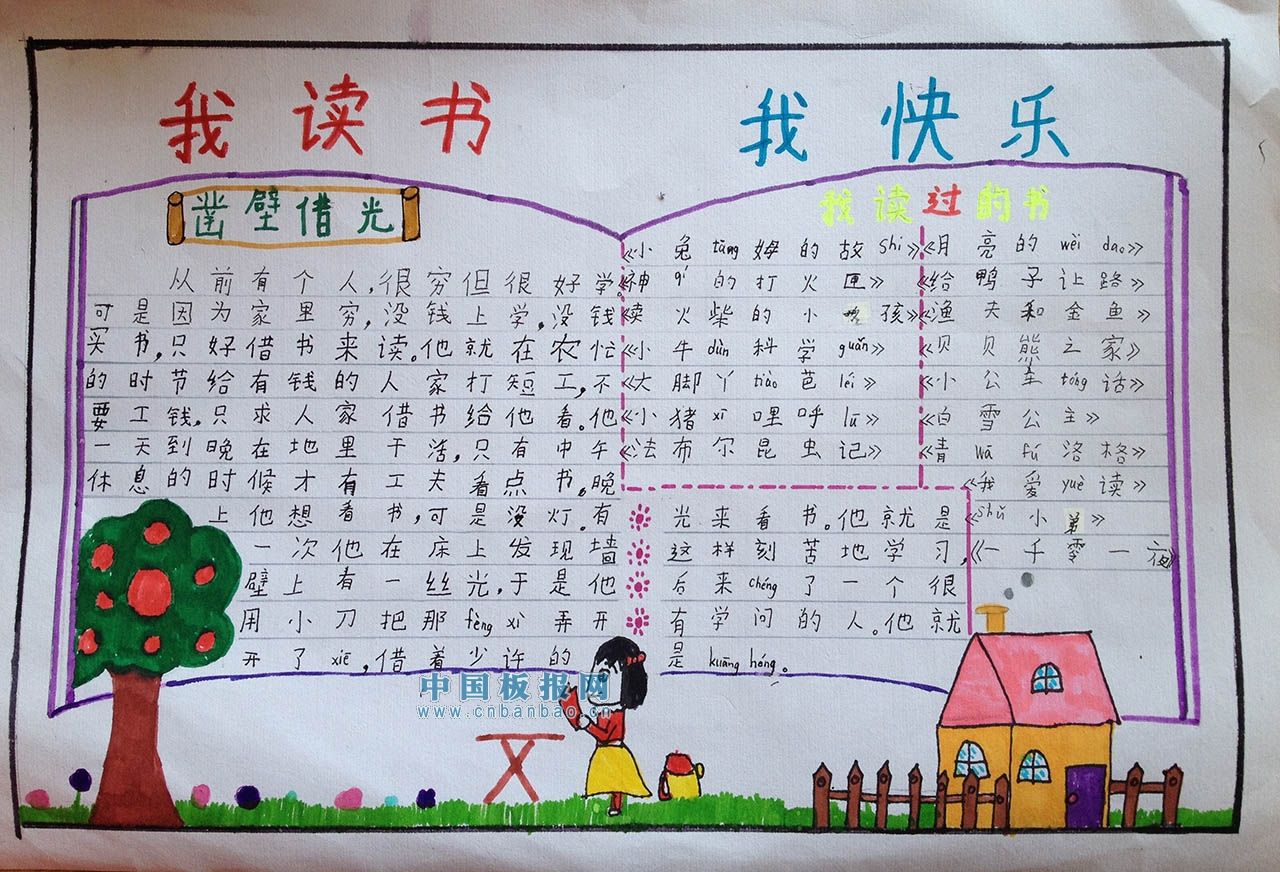 我读书 我快乐
凿壁借光
从前有个人,很穷但很好学。
可是因为家里穷,没钱上学,没钱
买书,只好借书来读。他就在农忙
的时节给有钱的人家打短工,不
要工钱,只求人家借书给他看。他
一天到晚在地里干活,只有中午
休息的时候才有工夫看点书。晚
上他想看书,可是没灯。有
一次他在床上发现墙
壁上有一丝光,于是他
用小刀把那fèng xì弄开
开了xiē,借着少许的
光来看书。他就是
这样刻苦地学习,
后来chéng了一个很
有学问的人。他就
是kuāng héng。
我读过的书
《小兔tāng姆的故shi》
《神qí的打火匣》
《卖火柴的小孩》
《小牛dùn科学guǎn》
《大脚丫tiào芭léi》
《小猪xī哩呼lū》
《法布尔昆虫记》
《月亮的wèi dao》
《给鸭子让路》
《渔夫和金鱼》
《贝贝熊之家》
《小公主tóng话》
《白雪公主》
《青wā fú洛格》
《我爱yuè读》
《shū小弟》
《一千零一夜》
中国板报网
www.cnbanbao.cn